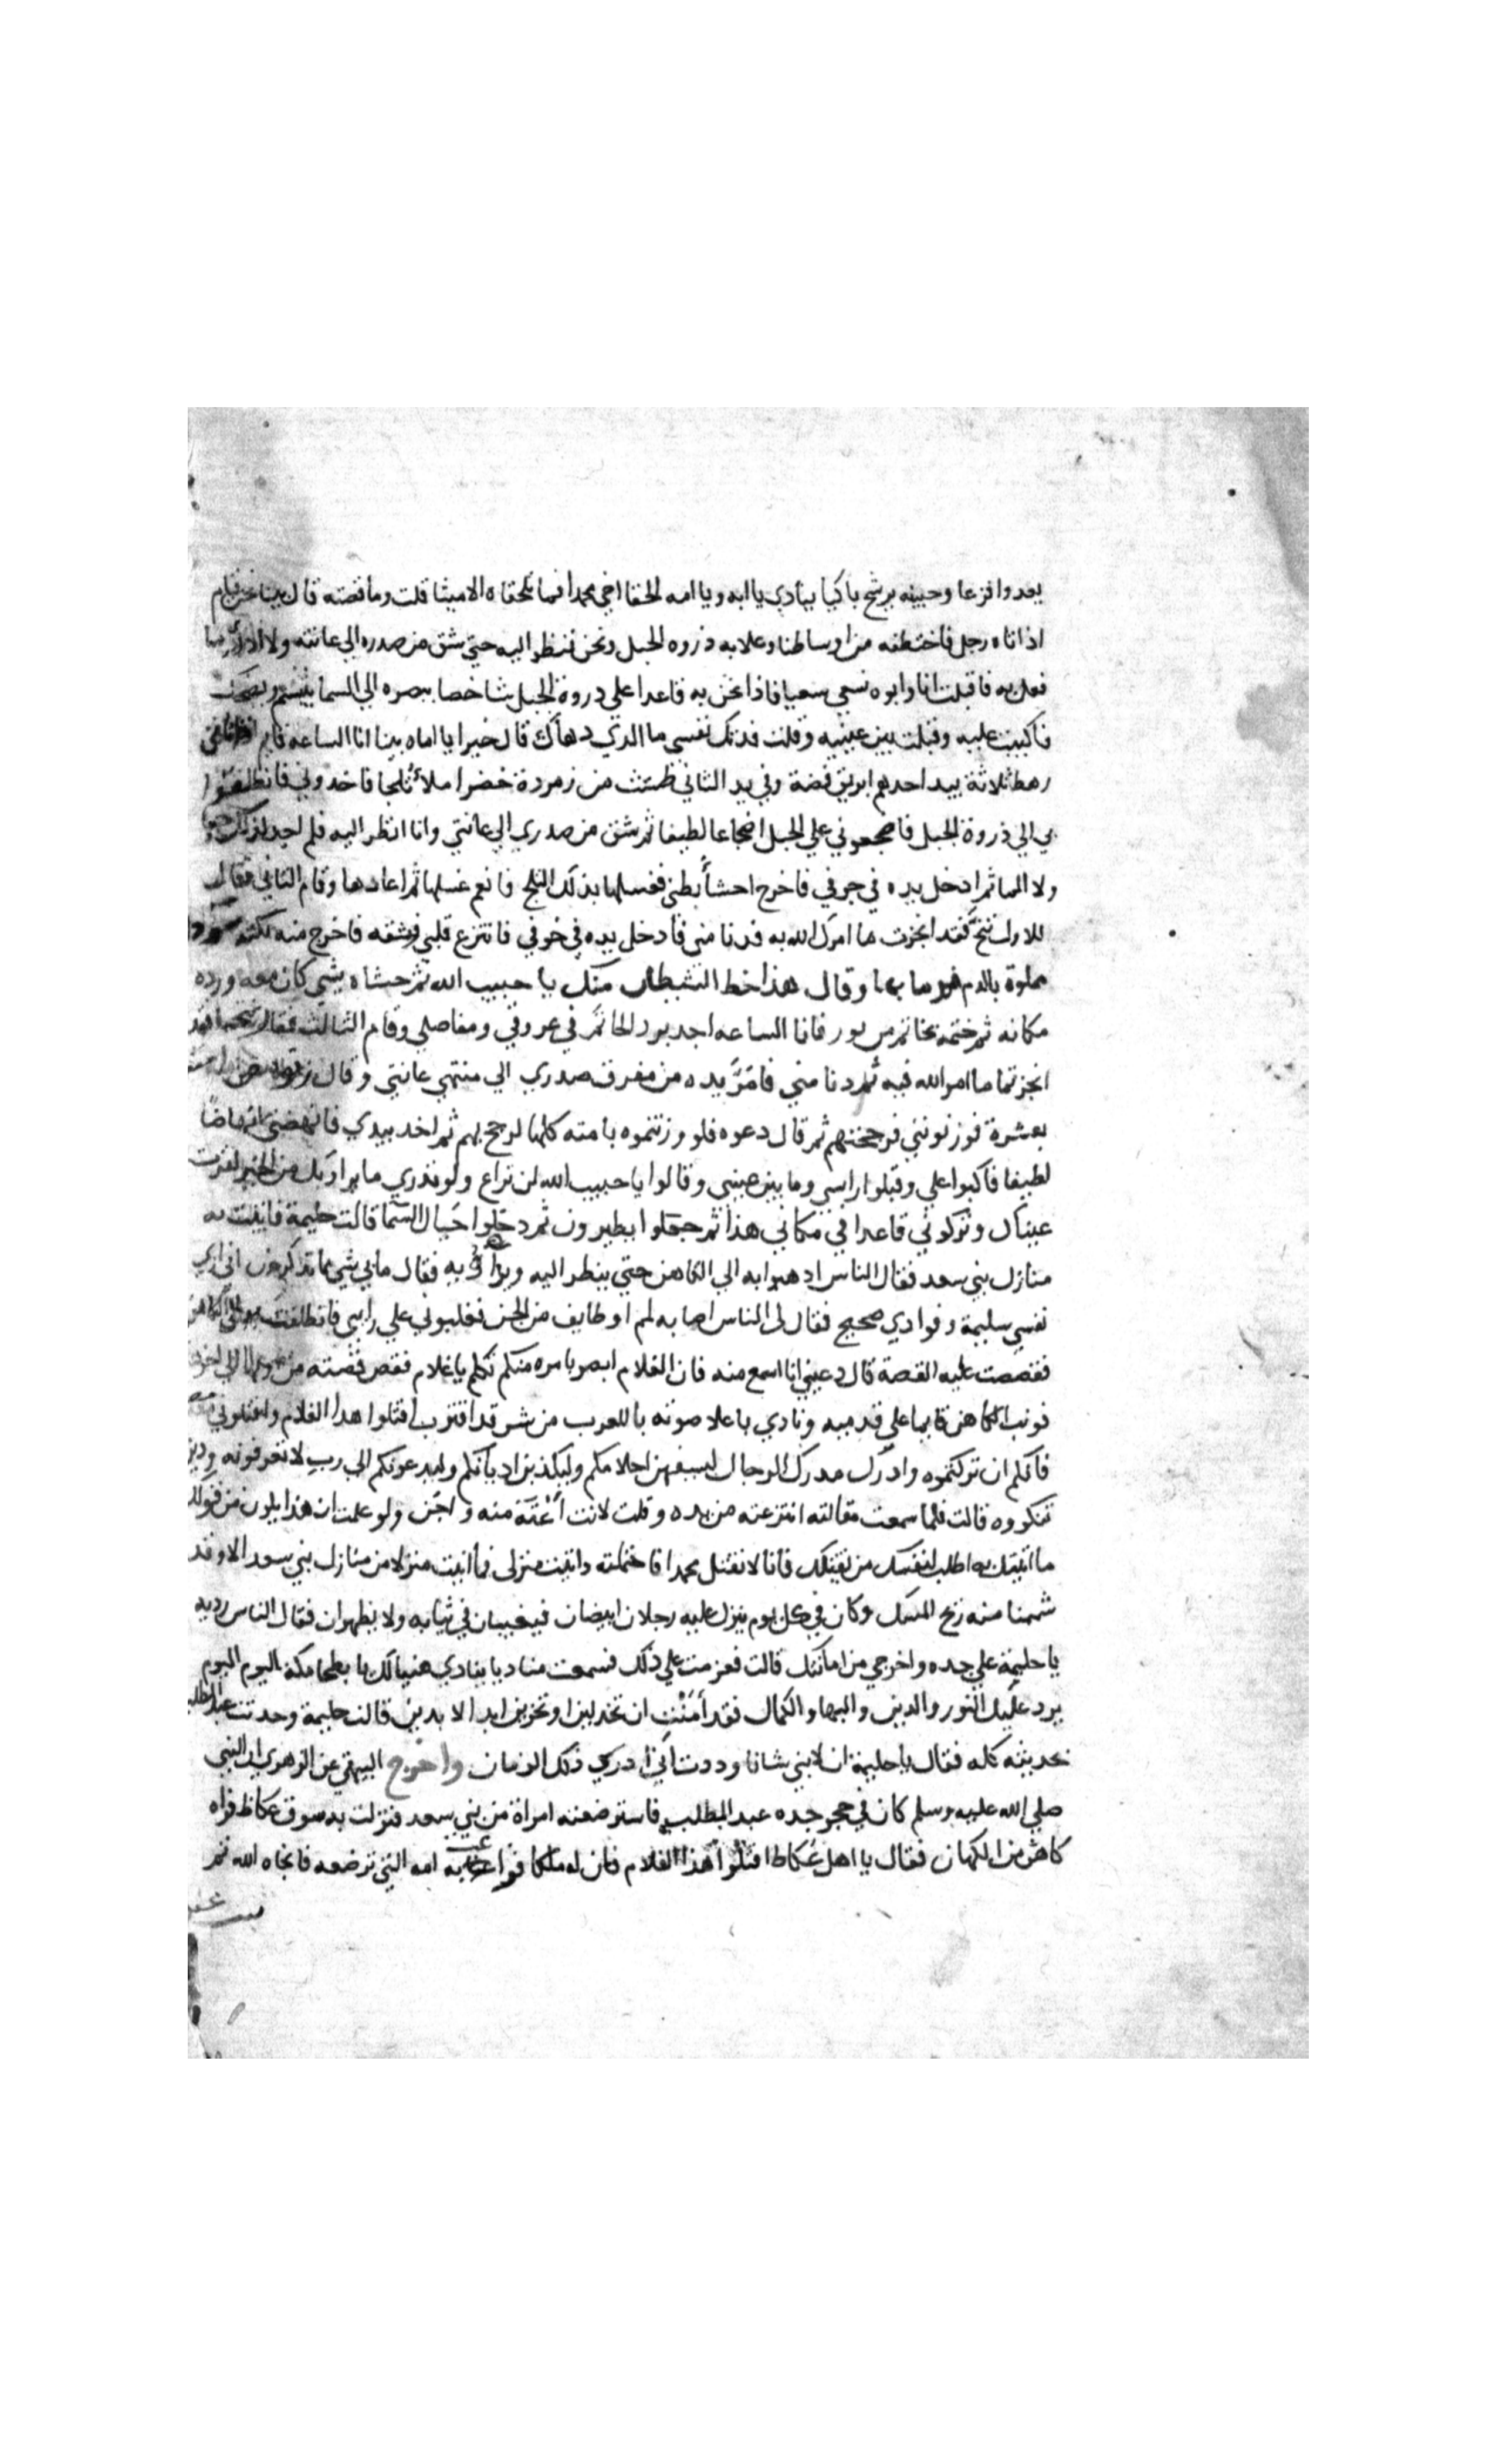 يعدوا فزعا وجبينه يرشح باكيا ينادي يا ابه ويا امه الحقا اخي محمدا فما تلحقاه الا ميتا قلت وما قصته قال بينا نحن قيام
اذ اتاه رجل فاختطفه من اوساطنا وعلا به ذروه الجبل ونحن ننظر اليه حتي شق من صدره الي عانته ولا ادري ما
فعل به فاقبلت انا وابوه نسعي سعيا فاذا نحن به قاعدا علي دروة الجبل شاخصا ببصره الي السما يتبسم ويضحك
فاكببت عليه وقبلت بين عينيه وقلت فدتك نفسي ما الذي دهاك قال خيرا يا اماه بينا انا الساعه قايم اذ اتاني
رهط ثلاثة بيد احدهم ابريق فضة وفي يد الثاني طست من زمردة خضرا ملأ ثلجا فاخدوني فانطلقوا
بي الي ذروة الجبل فاضجعوني علي الجبل اضجاعا لطيفا ثم شق من صدري الي عانتي وانا انظر اليه فلم اجد لذلك حسا
ولا الما ثم ادخل يده في جوفي فاخرج احشأ بطني فغسلها بذلك الثلج فانعم غسلها ثم اعادها وقام الثاني فقال
للاول تنح فقد انجزت ما امرك الله به فدنا مني فادخل يده في جوفي فانتزع قلبي وشقه فاخرج منه نكتة سودا
مملوة بالدم فرما بها وقال هذا حظ الشيطان منك يا حبيب الله ثم حشاه بشي كان معه ورده
مكانه ثم ختمه بخاتم من نور فانا الساعه اجد برد الخاتم في عروقي ومفاصلي وقام الثالث فقال تنحيا فقد
انجزتما ما امر الله فيه ثم دنا مني فامَرَّ يده من مفرق صدري الي منتهي عانتي وقال زنوه من امته
بعشرة فوزنوني فرجحتهم ثم قال دعوه فلو وزنتموه بامته كلها لرجح بهم ثم اخد بيدي فانهضني انهاضا
لطيفا فاكبوا علي وقبلوا راسي وما بين عيني وقالوا يا حبيب الله لن تراع ولو تدري ما يراد بك من الخير لقرت
عيناك وتركوني قاعدا في مكاني هذا ثم جعلوا يطيرون ثم دخلوا حيال السما قالت حليمة فاتيت به
منازل بني سعد فقال الناس ادهبوا به الي الكاهن حتي ينظر اليه ويداويه فقال ما بي شي مما تذكرون اني اري
نفسي سليمة وفوادي صحيح فقال لى الناس اصابه لمم او طايف من الجن فغلبوني علي رايي فانطلقت به الي الكاهن
فقصصت عليه القصة قال دعيني انا اسمع منه فان الغلام ابصر بامره منكم تكلم يا غلام فقص قصته من اولها الي اخرها
فوثب الكاهن قايما علي قدميه ونادي باعلا صوته يا للعرب من شر قد اقترب اقتلوا هدا الغلام واقتلوني معه
فانكم ان تركتموه وادرك مدرك الرجال ليسفهن احلامكم وليكذبن اديانكم وليدعونكم الي رب لا تعرفونه ودين
تنكروه قالت فلما سمعت مقالته انتزعته من يده وقلت لانت أعْتَهُ منه واجن ولو علمت ان هذا يكون من قولك
ما اتيتك به اطلب لنفسك من يقتلك فانا لا نقتل محمدا فاحتملته واتيت منزلى فما اتيت منزلا من منازل بني سعد الا وقد
شممنا منه ريح المسك وكان في كل يوم ينزل عليه رجلان ابيضان فيغيبان في ثيابه ولا يظهران فقال الناس رديه
يا حليمة علي جده واخرجي من امانتك قالت فعزمت علي ذلك فسمعت مناديا ينادي هنيا لك يا بطحا مكة اليوم اليوم
يرد عليك النور والدين والبها والكمال فقد أمنْتِ ان تخدلين او تخزين ابدا لا بدين قالت حليمة وحدثت عبد المطلب
بحديثه كله فقال يا حليمة ان لابني شانا وددت اني ادرك ذلك الزمان واخرج البيهقي عن الزهري ان النبي
صلي الله عليه وسلم كان في حجر جده عبد المطلب فاسترضعته امراة من بني سعد فنزلت به سوق عكاظ فراه
كاهن من الكهان فقال يا اهل عُكاظ اقتلوا هذا الغلام فان له ملكا فراعت به امه التي ترضعه فانجاه الله ثم